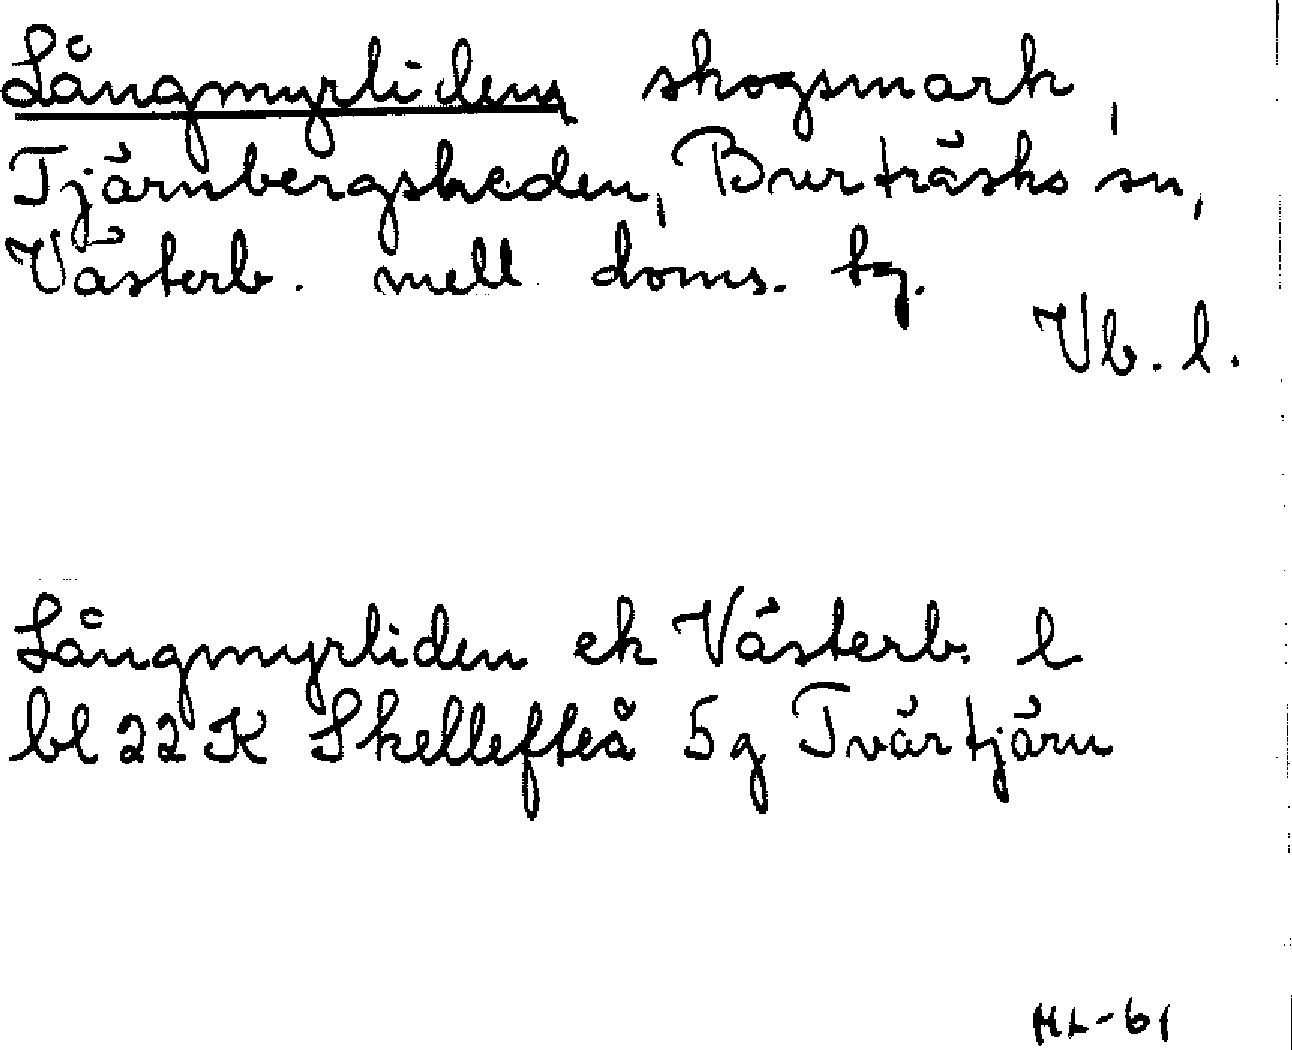 Långmyrliden, skogsmark,
Tjärnbergsheden, Burträsks sn,
Västerb. mell. doms. tg.
Vb. l.
Långmyrliden ek Västerb. l
bl 22 K Skellefteå 5g Tvärtjärn
HL-61